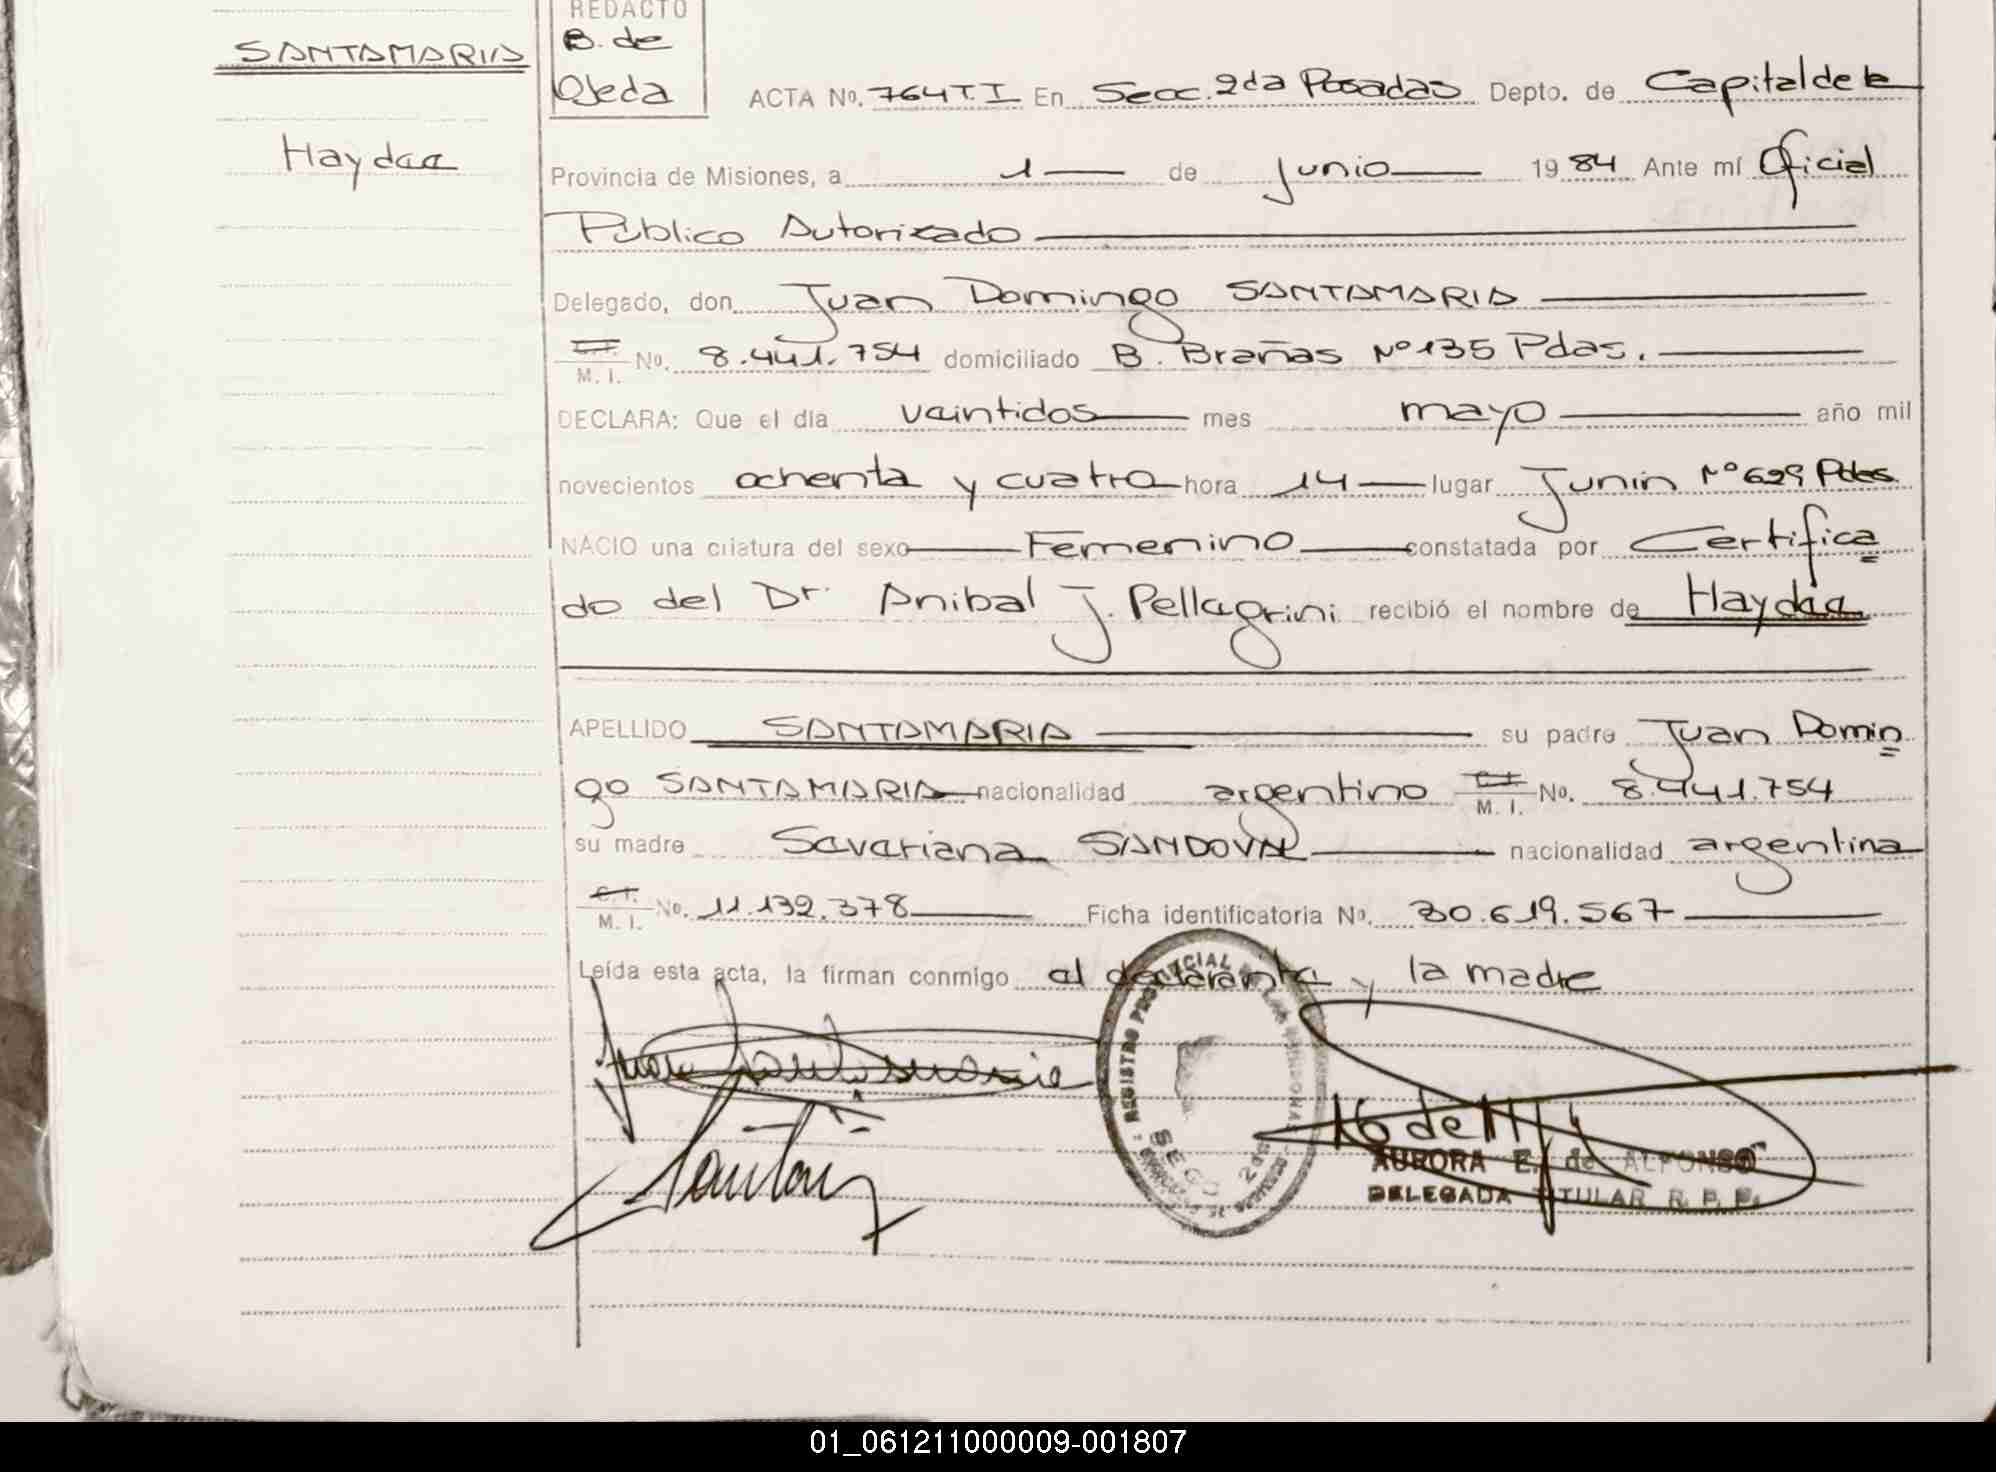 REDACTO
SANTAMARIA
B. de
Ojeda
ACTA No. 764 T. I En Secc. 2da Posadas Depto. de Capital de la
Haydee
Provincia de Misiones, a 1 de Junio 1984 Ante mí Oficial
Público Autorizado
Delegado, don Juan Domingo SANTAMARIA
C.I. M. I. No. 8.441.754 domiciliado B. Brañas Nº 135 Pdas.
DECLARA: Que el día veintidos mes mayo año mil
novecientos ochenta y cuatro hora 14 lugar Junin Nº 629 Pdas
NACIO una criatura del sexo Femenino constatada por Certifica
do del Dr. Anibal J. Pellegrini recibió el nombre de Haydee
APELLIDO SANTAMARIA su padre Juan Domin
go SANTAMARIA nacionalidad argentino C.I. M. I. No. 8.441.754
su madre Severiana SANDOVAL nacionalidad argentina
C.I. M. I. No. 11.132.378 Ficha identificatoria No. 30.619.567
Leída esta acta, la firman conmigo el declarante y la madre
REGISTRO PROVINCIAL DE LAS PERSONAS
SECC 2da
AURORA E. de ALFONSO
DELEGADA TITULAR R. P. P.
01_061211000009-001807